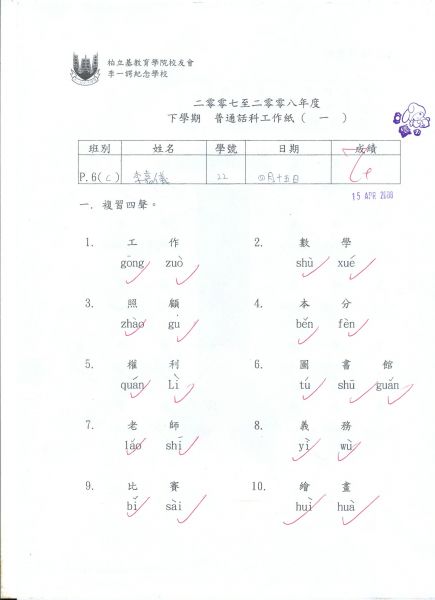 柏立基教育學院校友會
李一諤紀念學校
二零零七至二零零八年度
下學期 普通話科工作紙( 一 )
班別 姓名 學號 日期 成績
P.6(C) 李嘉儀 22 四月十五日
15 APR 2008
一. 複習四聲。
1. 工 作 2. 數 學
gōng zuò shù xué
3. 照 顧 4. 本 分
zhào gù běn fèn
5. 權 利 6. 圖 書 館
quán Lì tú shū guǎn
7. 老 師 8. 義 務
lǎo shī yì wù
9. 比 賽 10. 繪 畫
bǐ sài huì huà